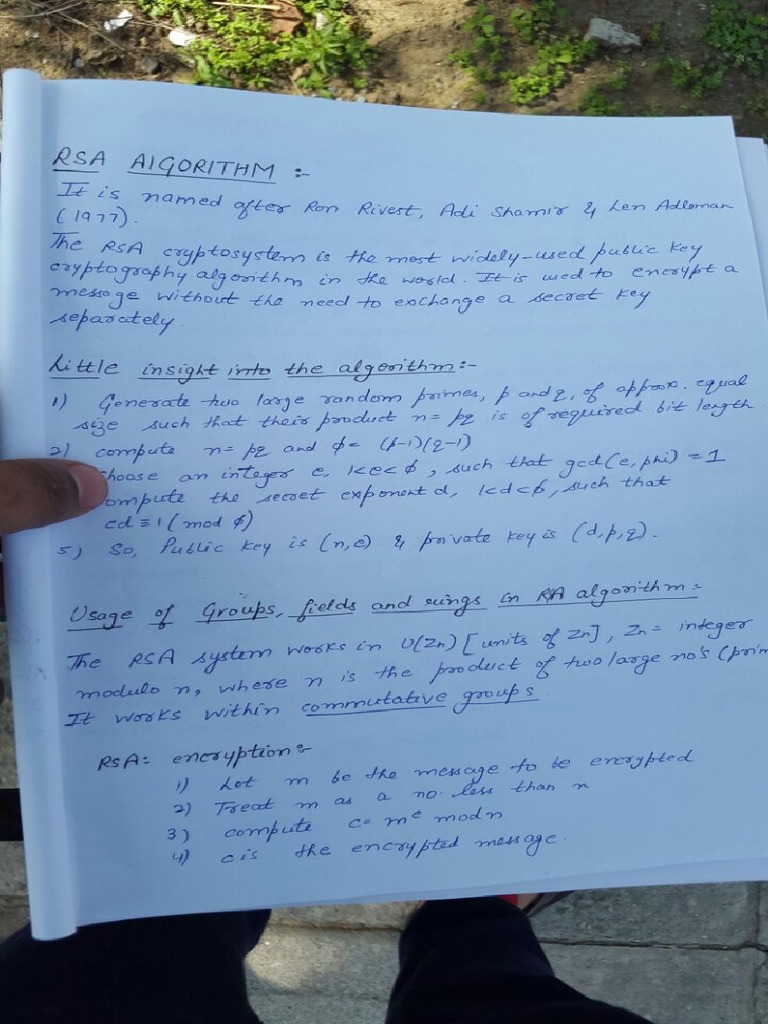 RSA AlGORITHM :-
It is named after Ron Rivest, Adi Shamir & Len Adleman
(1977).
The RSA cryptosystem is the most widely-used public key
cryptography algorithm in the world. It is used to encrypt a
message without the need to exchange a secret key
separately.
Little insight into the algorithm:-
1) Generate two large random primes, p and q, of approx. equal
size such that their product n= pq is of required bit length.
2) compute n= pq and ϕ= (p-1)(q-1)
hoose an integer e, 1<e<ϕ, such that gcd(e, phi) = 1
ompute the secret exponent d, 1<d<ϕ, such that
ed ≡ 1 ( mod ϕ)
5) So, Public key is (n,e) & private key is (d,p,q).
Usage of Groups, fields and rings in RA algorithm:
The RSA system works in U(Zn) [units of Zn], Zn = integer
modulo n, where n is the product of two large no's (prim
It works within commutative groups
RSA: encryption:-
1) Let m be the message to be encrypted
2) Treat m as a no. less than n
3) compute c= m^e mod n
4) c is the encrypted message.